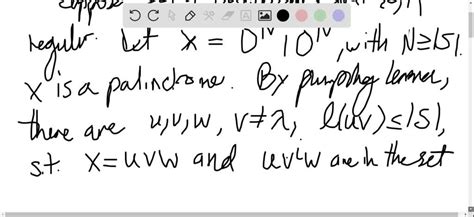 regulr. Let X = 0ᴺ 1 0ᴺ, with N≥|S|.
X is a palindrome. By pumping lemma,
there are u, v, w, v≠λ, l(uv)≤|S|,
s.t. X=uvw and uvⁱw are in the set